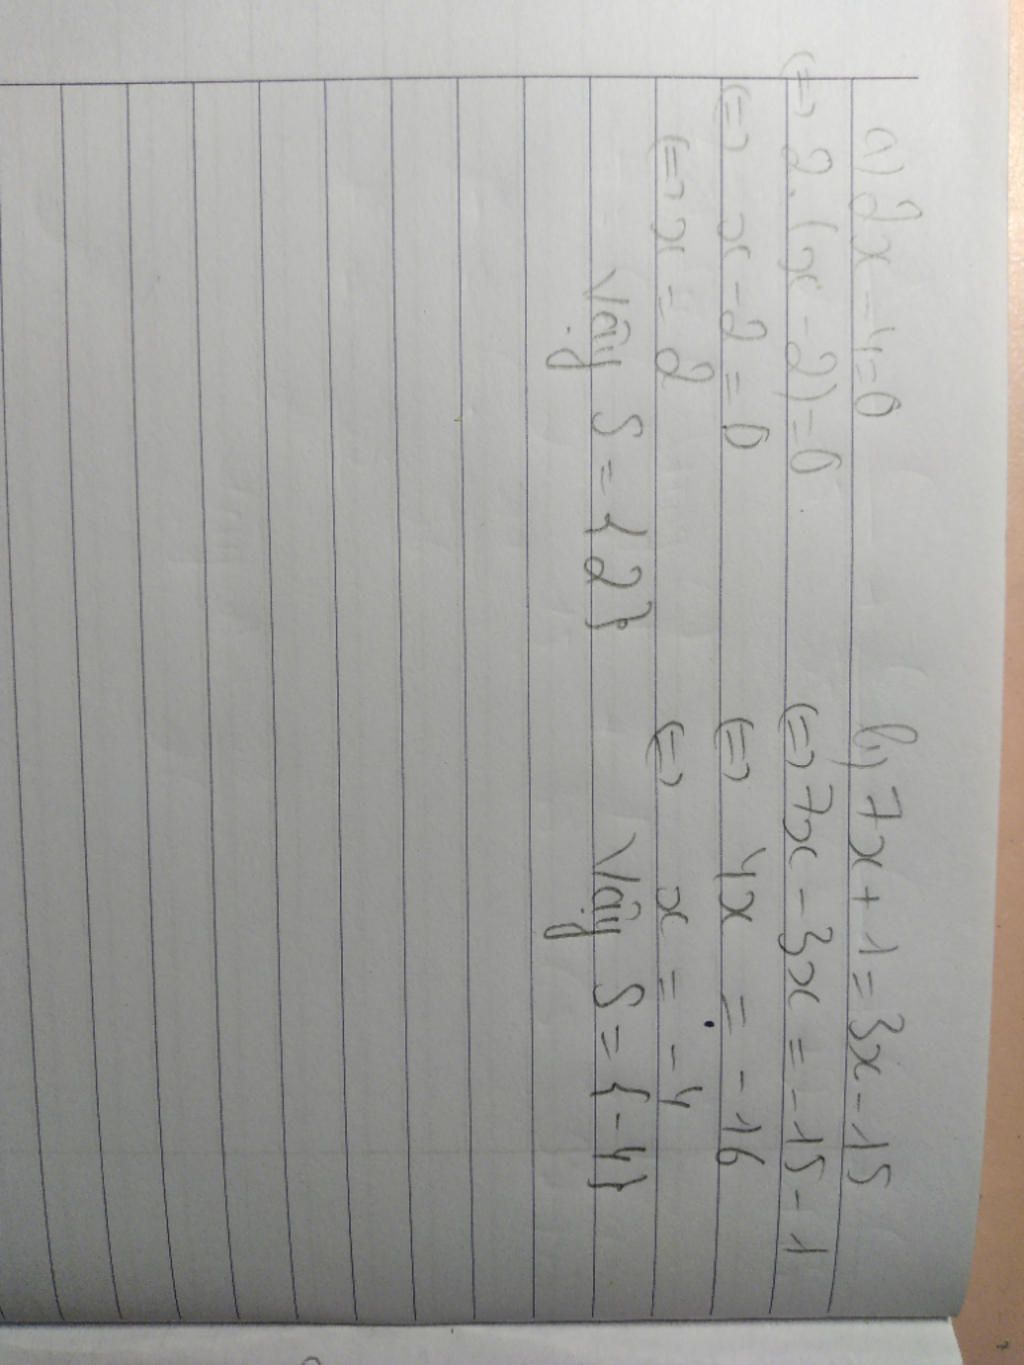 a) 2x - 4 = 0
<=> 2.(x - 2) = 0
<=> x - 2 = 0
<=> x = 2
Vậy S = {2}
b) 7x + 1 = 3x - 15
<=> 7x - 3x = -15 - 1
<=> 4x = -16
<=> x = -4
Vậy S = {-4}